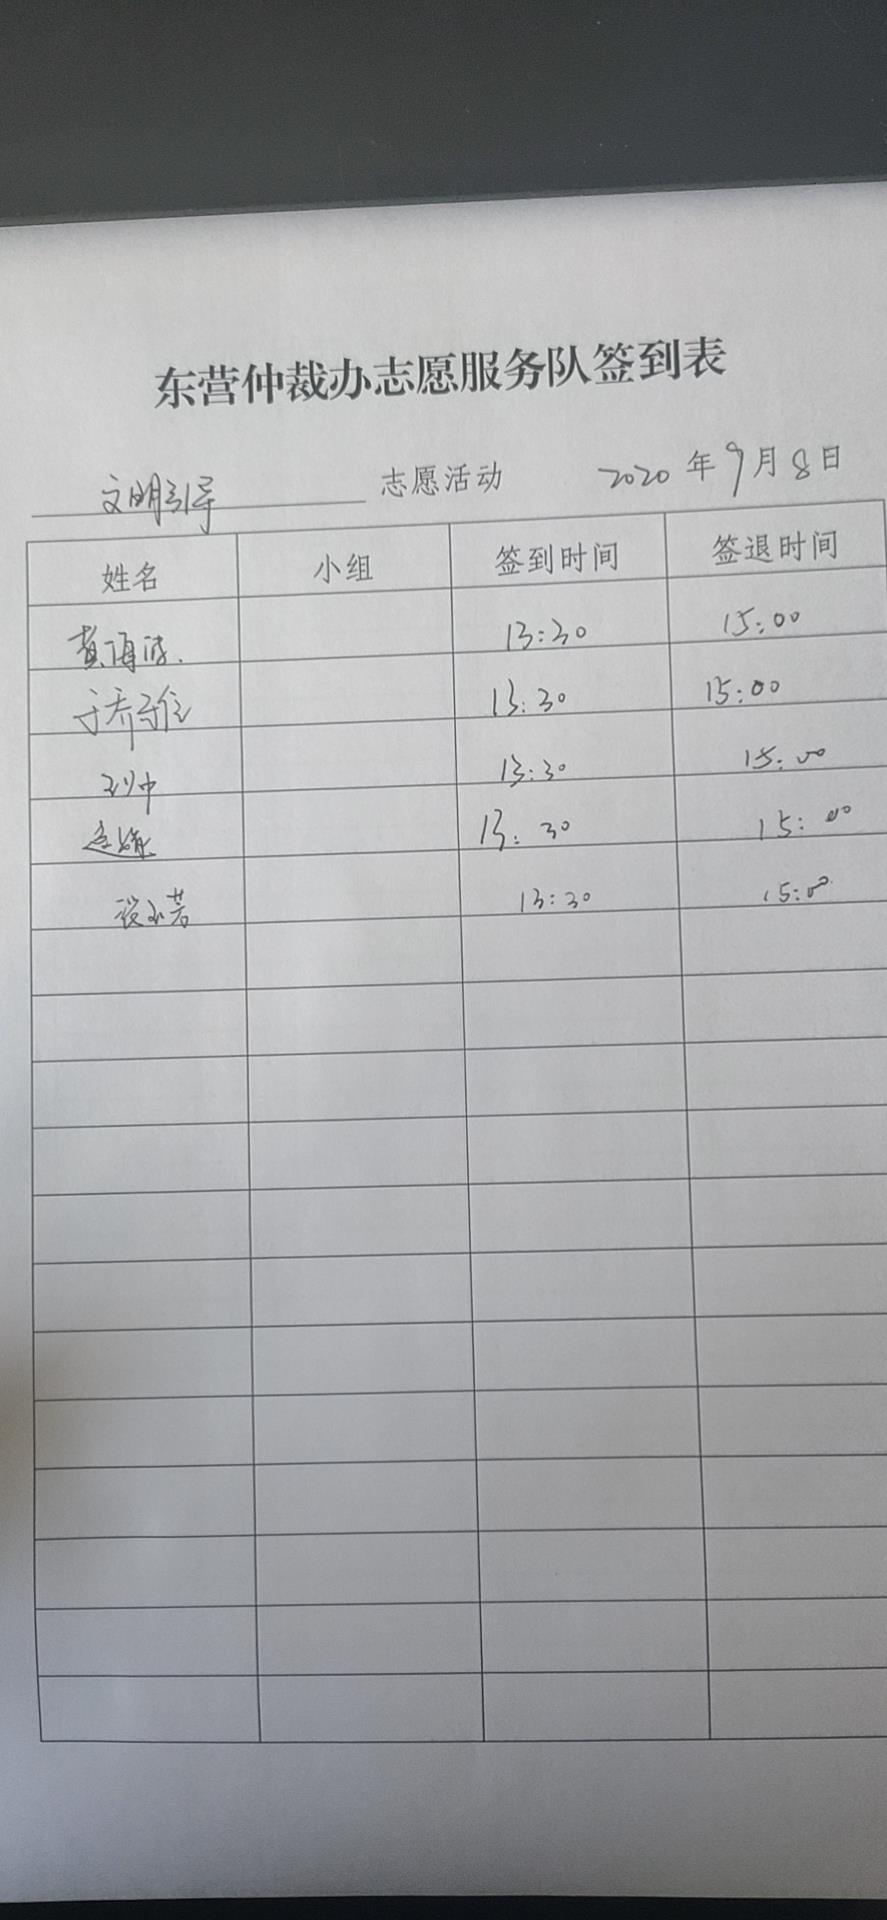 东营仲裁办志愿服务队签到表
文明引导 志愿活动 2020年9月8日
姓名 小组 签到时间 签退时间
黄海波 13:30 15:00
13:30 15:00
13:30 15:00
13:30 15:00
13:30 15:00